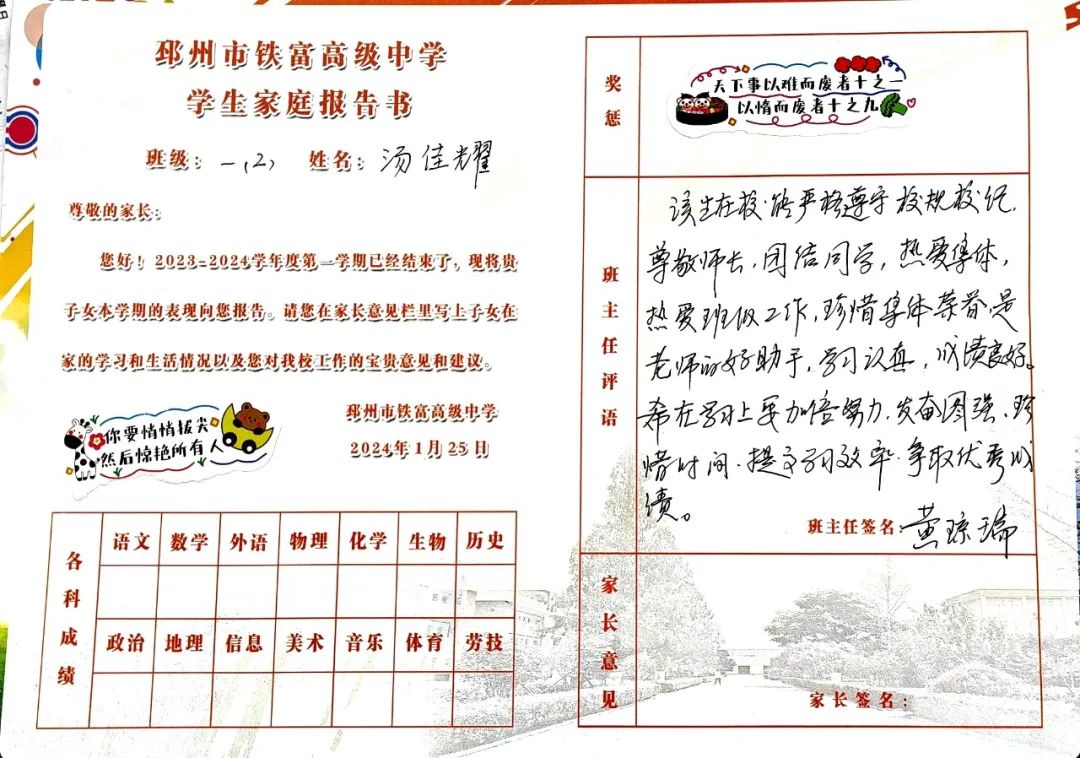 邳州市铁富高级中学
学生家庭报告书
班级：一,(2) 姓名：汤佳耀
尊敬的家长：
您好！2023-2024学年度第一学期已经结束了，现将贵
子女本学期的表现向您报告。请您在家长意见栏里写上子女在
家的学习和生活情况以及您对我校工作的宝贵意见和建议。
邳州市铁富高级中学
2024年1月25日
你要悄悄拔尖
然后惊艳所有人
各科成绩
语文 数学 外语 物理 化学 生物 历史
政治 地理 信息 美术 音乐 体育 劳技
奖惩
天下事以难而废者十之一
以惰而废者十之九
班主任评语
该生在校能严格遵守校规校纪,
尊敬师长,团结同学,热爱集体,
热爱班级工作,珍惜集体荣誉,是
老师的好助手,学习认真,成绩良好。
希在学习上要加倍努力,发奋图强,珍
惜时间,提高学习效率,争取优秀成
绩。
班主任签名：黄琼瑞
家长意见
家长签名：